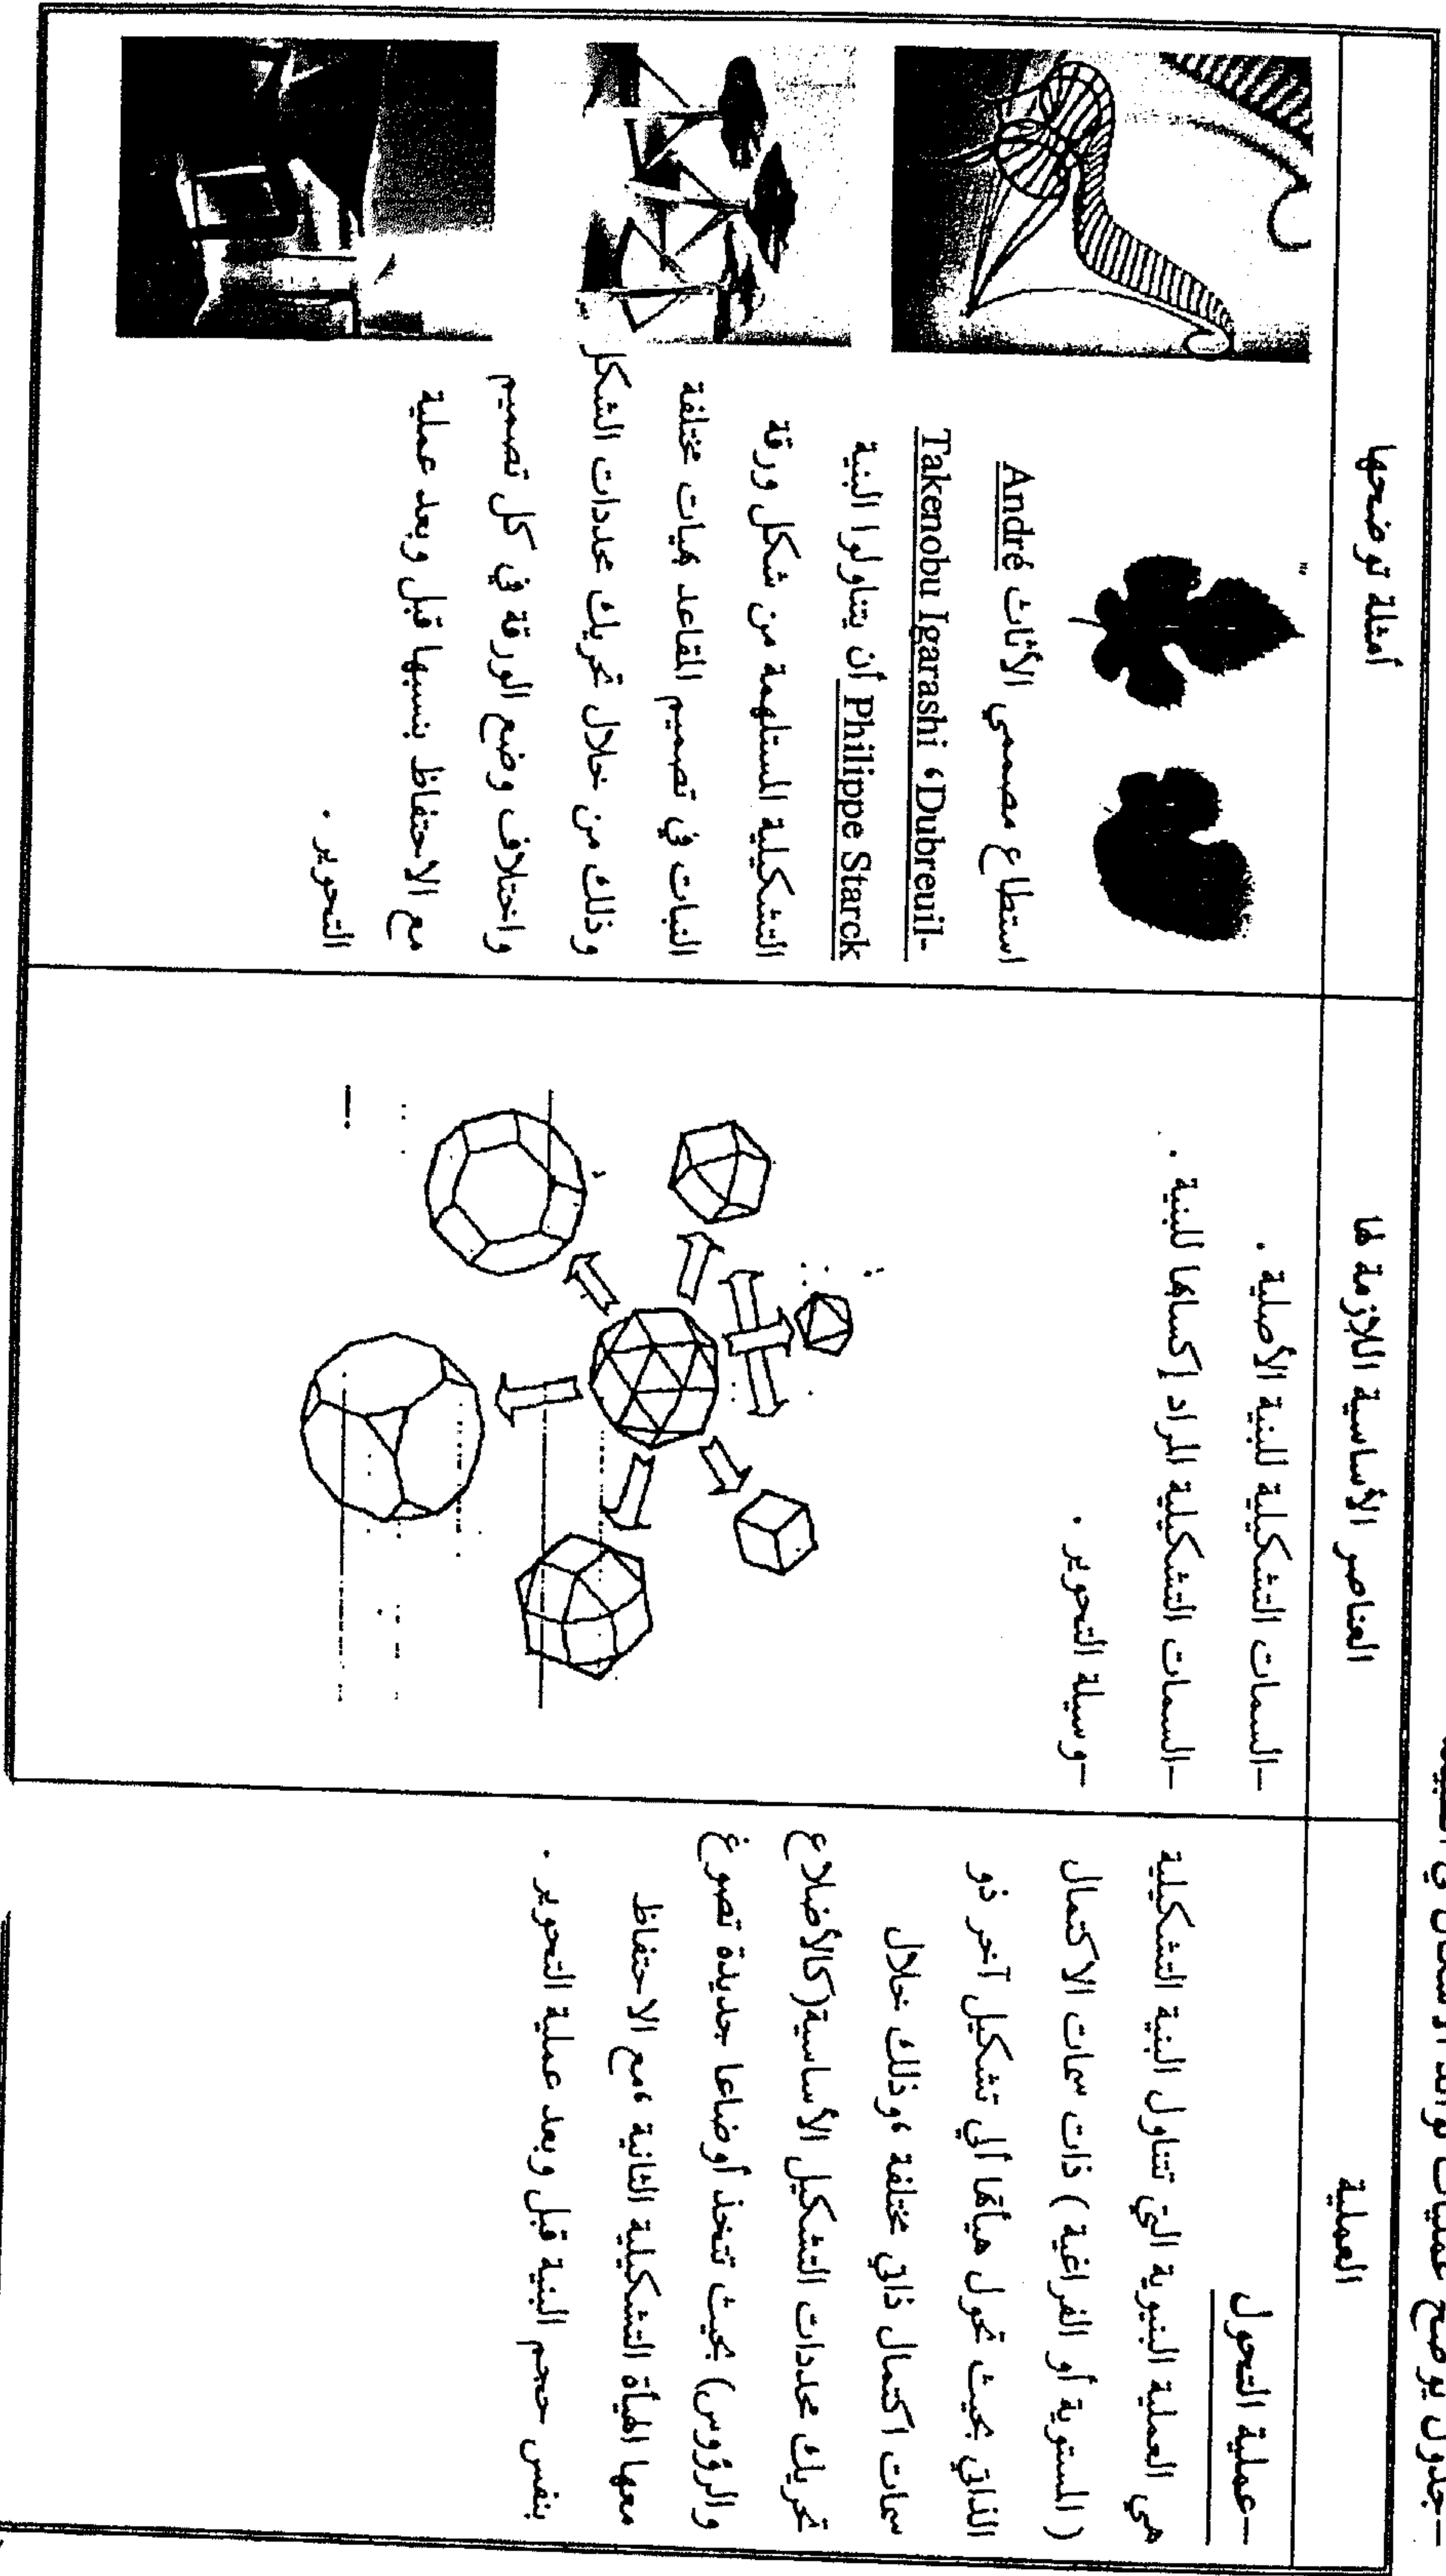 –جدول يوضح عمليات توالد الأشكال في
العملية
العناصر الأساسية اللازمة لها
أمثلة توضحها
–عملية التحول
هي العملية البنيوية التي تتناول البنية التشكيلية
( المستوية أو الفراغية ) ذات سمات الاكتمال
الذاتي بحيث تحول هيأتها ألي تشكيل آخر ذو
سمات اكتمال ذاتي مختلفة ،وذلك خلال
تحريك محددات التشكيل الأساسية(كالأضلاع
والرؤوس) بحيث تتخذ أوضاعا جديدة تصوغ
معها الهيأة التشكيلية الثانية ،مع الاحتفاظ
بنفس حجم البنية قبل وبعد عملية التحوير .
–السمات التشكيلة للبنية الأصلية .
–السمات التشكيلية المراد إكسابها للبنية .
–وسيلة التحوير .
استطاع مصممي الأثاث André
Takenobu Igarashi ،Dubreuil-
Philippe Starck أن يتناولوا البنية
التشكيلية المستلهمة من شكل ورقة
النبات في تصميم المقاعد بهيات مختلفة
وذلك من خلال تحريك محددات الشكل
واختلاف وضع الورقة في كل تصميم
مع الاحتفاظ بنسبها قبل وبعد عملية
التحوير .